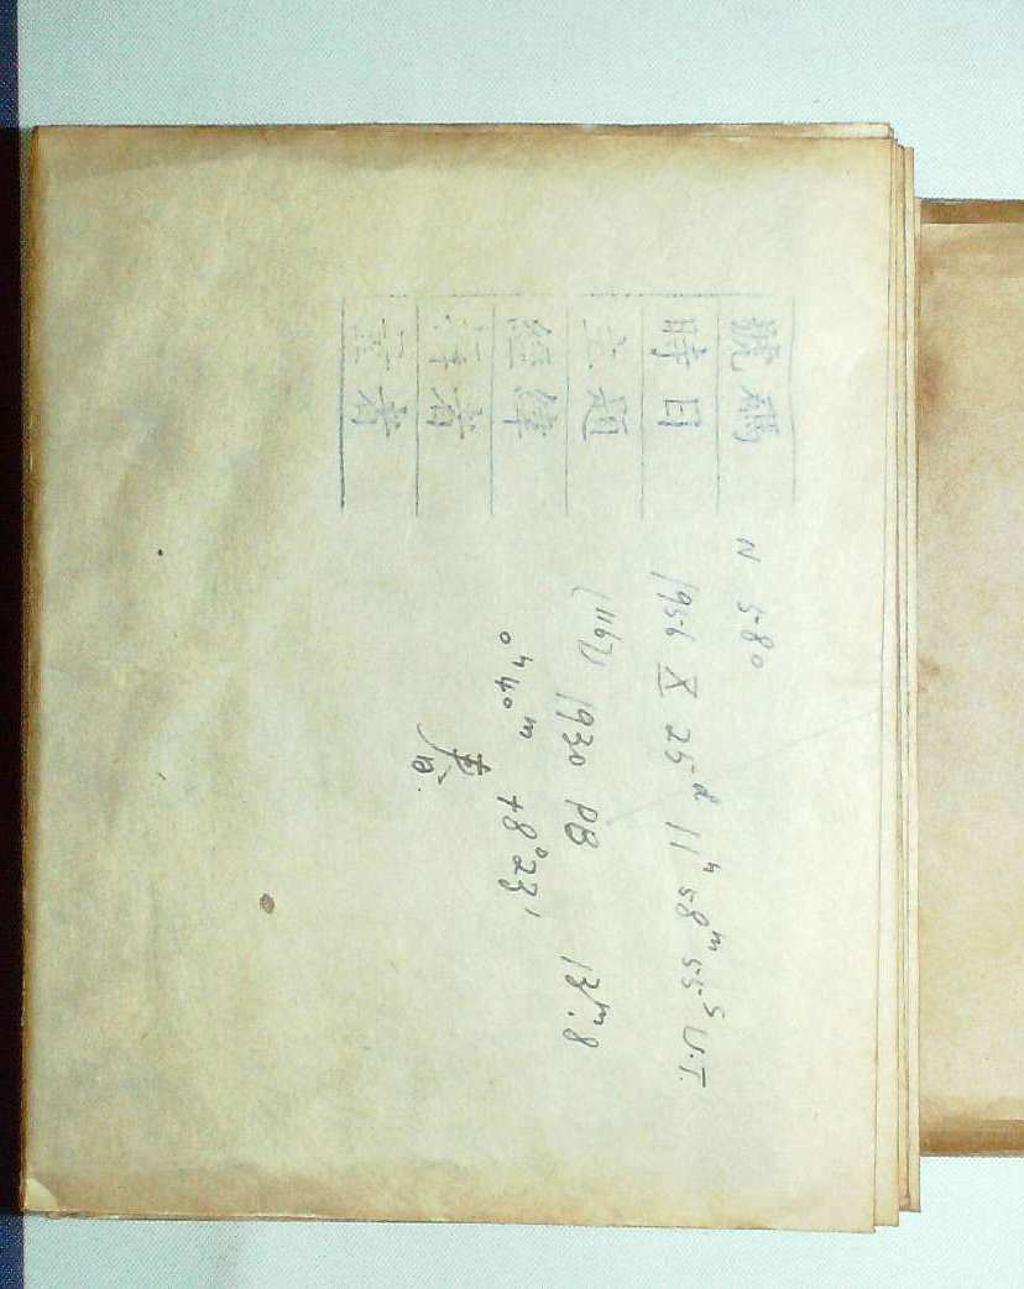 號碼 N 580
時日 1956 X 25ᵈ 11ʰ 58ᵐ 55ˢ U.T.
主題 (1167) 1930 PB 13ᵐ.8
經緯 0ʰ40ᵐ +8°23'
者
量者